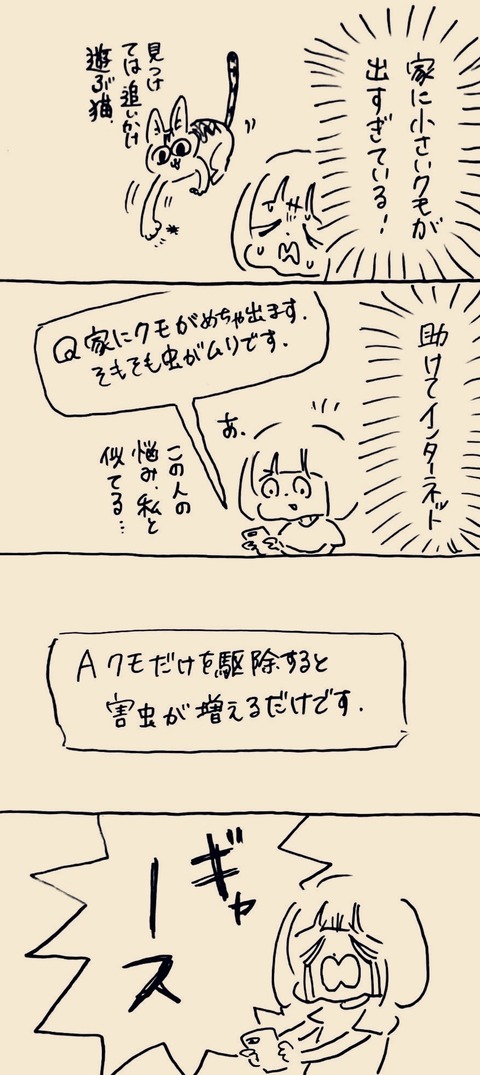 家に小さいクモが
出すぎている!
見つけ
ては追いかけ
遊ぶ猫.
助けてインターネット
Q 家にクモがめちゃ出ます.
そもそも虫がムりです.
あ.
この人の
悩み、私と
似てる…
A クモだけを駆除すると
害虫が増えるだけです.
ギャ
ース